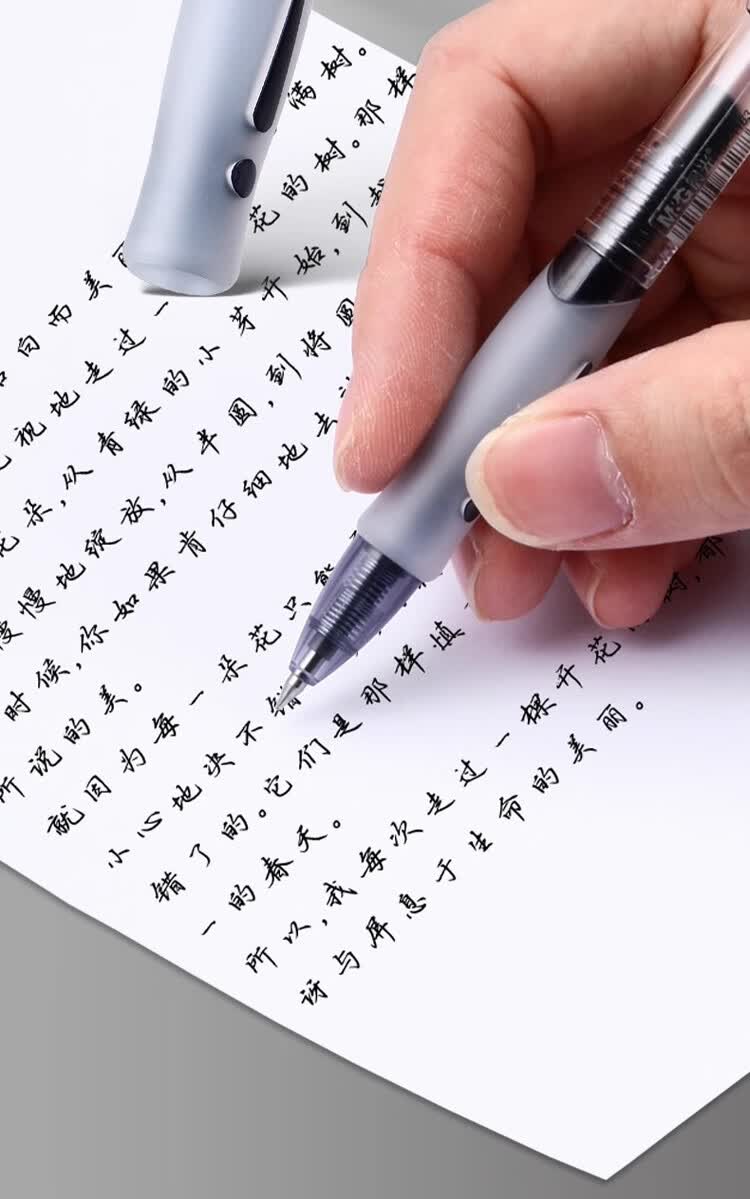 向而美 满树。
视地走过一 花的树。那样
花朵,从青绿的小芽开始,到
慢慢地绽放,从半圆,到将圆
时候,你如果肯仔细地去
所说的美。
就因为每一朵花只能
小心地决不错
错了的。它们是那样慎
一的春天。
所以,我每次走过一棵开花 树,那
讶与屏息于生命的美丽。
M&G